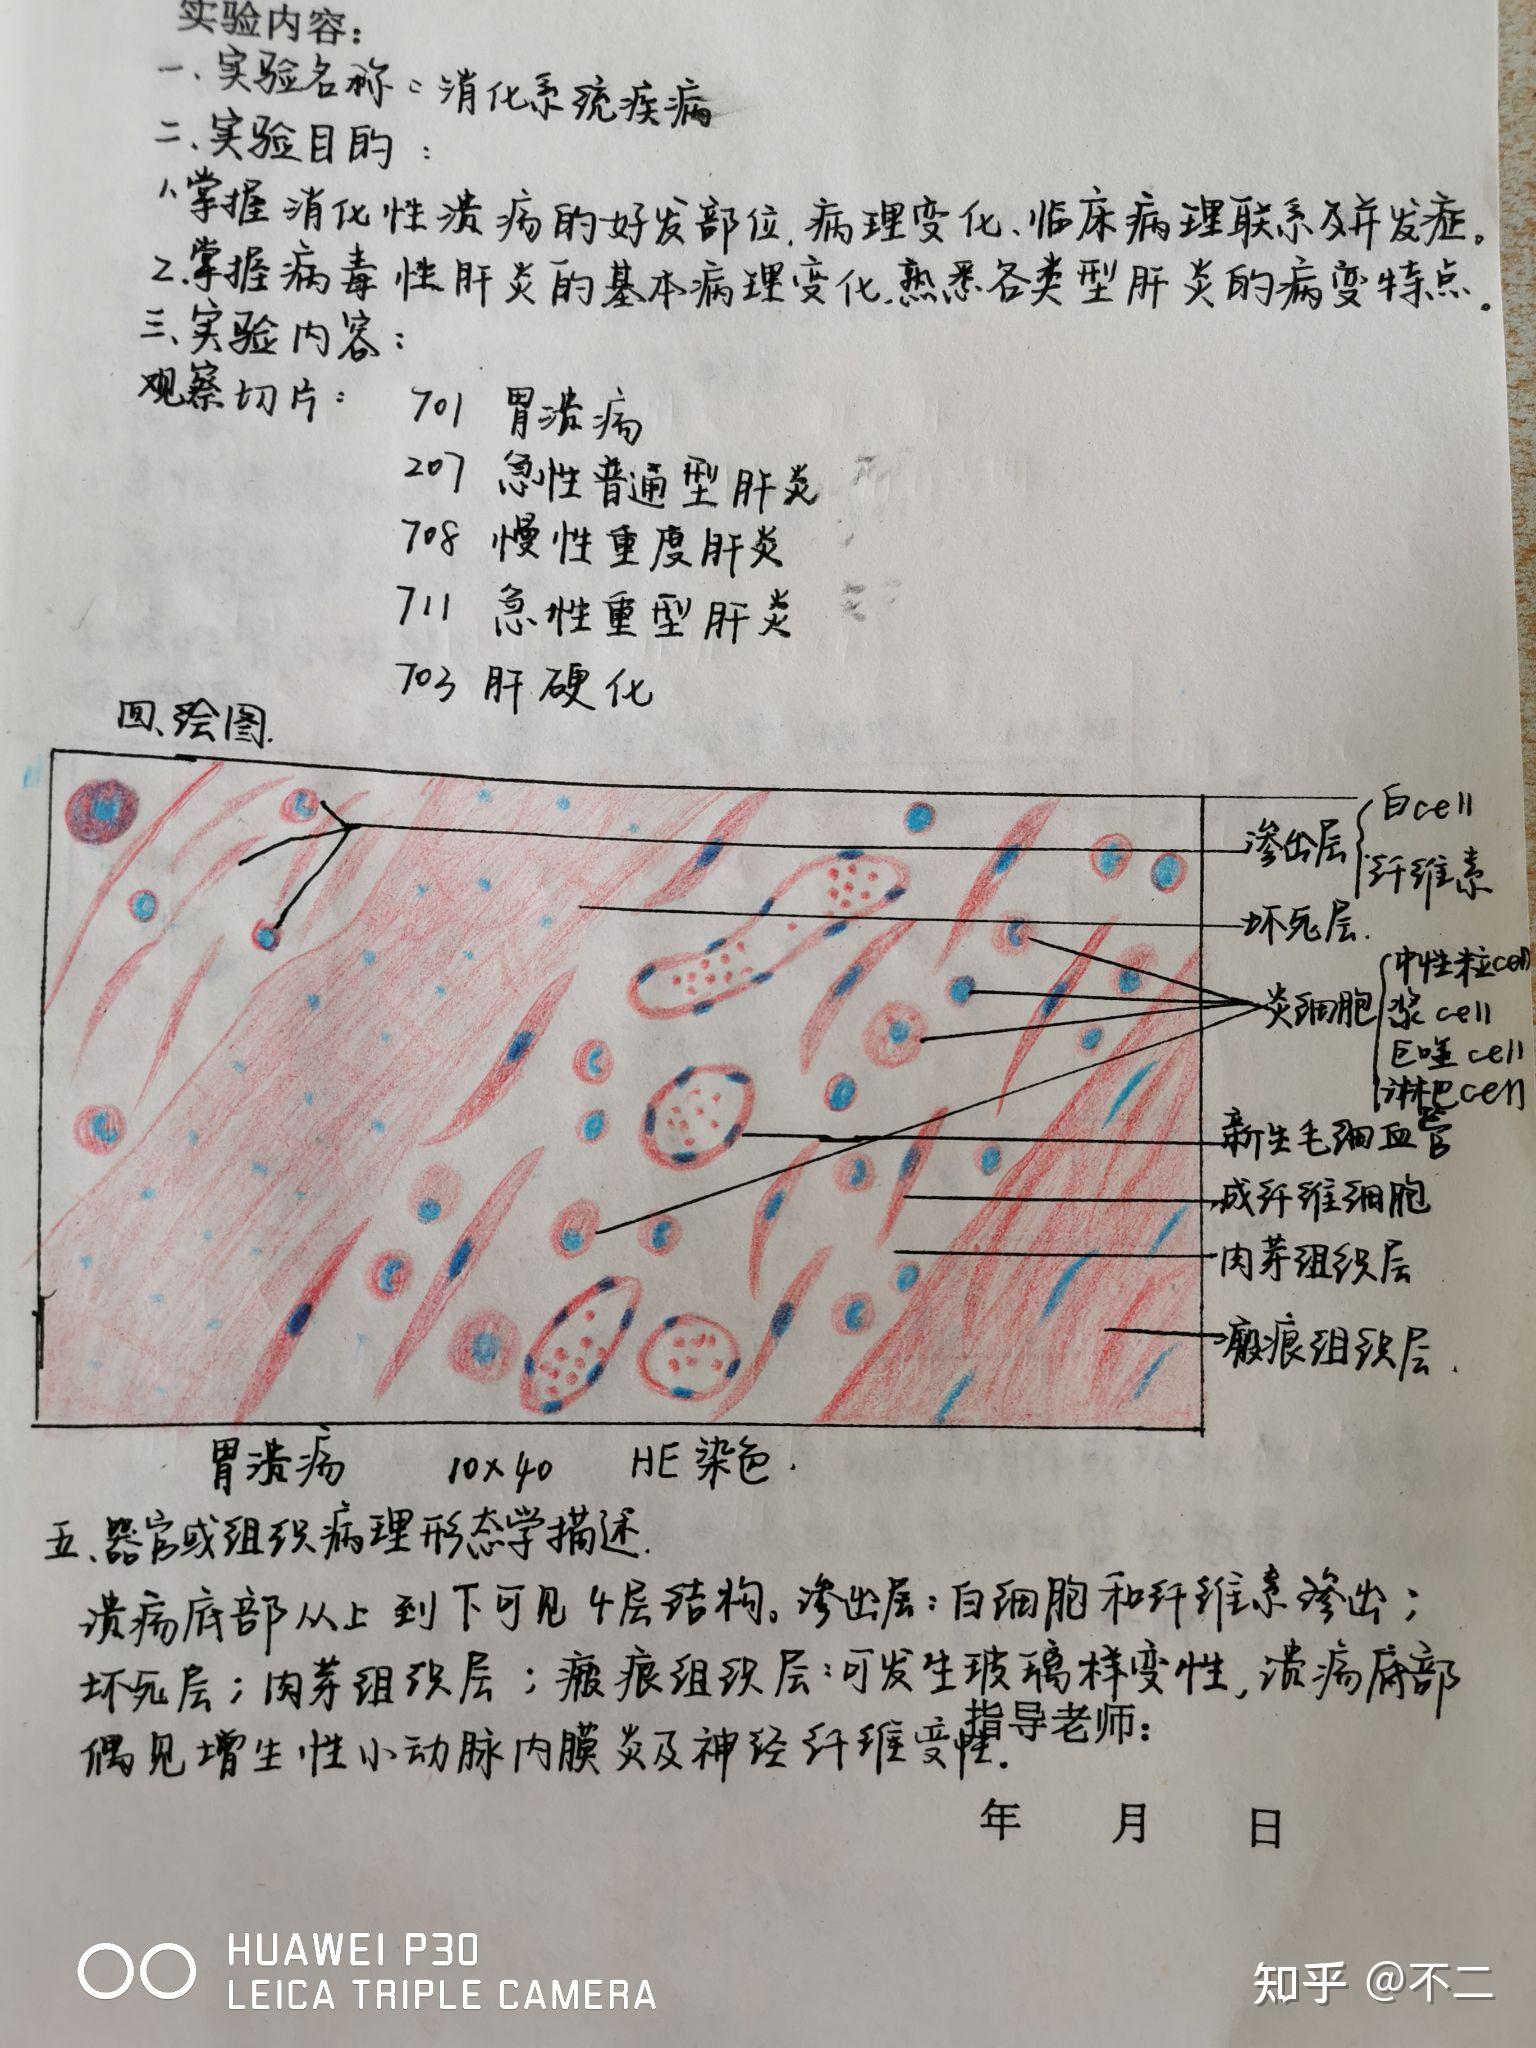 实验内容：
一、实验名称：消化系统疾病
二、实验目的：
1、掌握消化性溃疡的好发部位、病理变化、临床病理联系及并发症。
2、掌握病毒性肝炎的基本病理变化、熟悉各类型肝炎的病变特点。
三、实验内容：
观察切片： 701 胃溃疡
207 急性普通型肝炎
708 慢性重度肝炎
711 急性重型肝炎
703 肝硬化
四、绘图.
渗出层 白cell
纤维素
坏死层.
炎细胞 中性粒cell
浆cell
巨噬cell
淋巴cell
新生毛细血管
成纤维细胞
肉芽组织层
瘢痕组织层.
胃溃疡 10×40 HE染色.
五、器官或组织病理形态学描述.
溃疡底部从上到下可见4层结构。渗出层：白细胞和纤维素渗出；
坏死层；肉芽组织层；瘢痕组织层：可发生玻璃样变性，溃疡底部
偶见增生性小动脉内膜炎及神经纤维变性.
指导老师：
年 月 日
HUAWEI P30
LEICA TRIPLE CAMERA
知乎 @不二